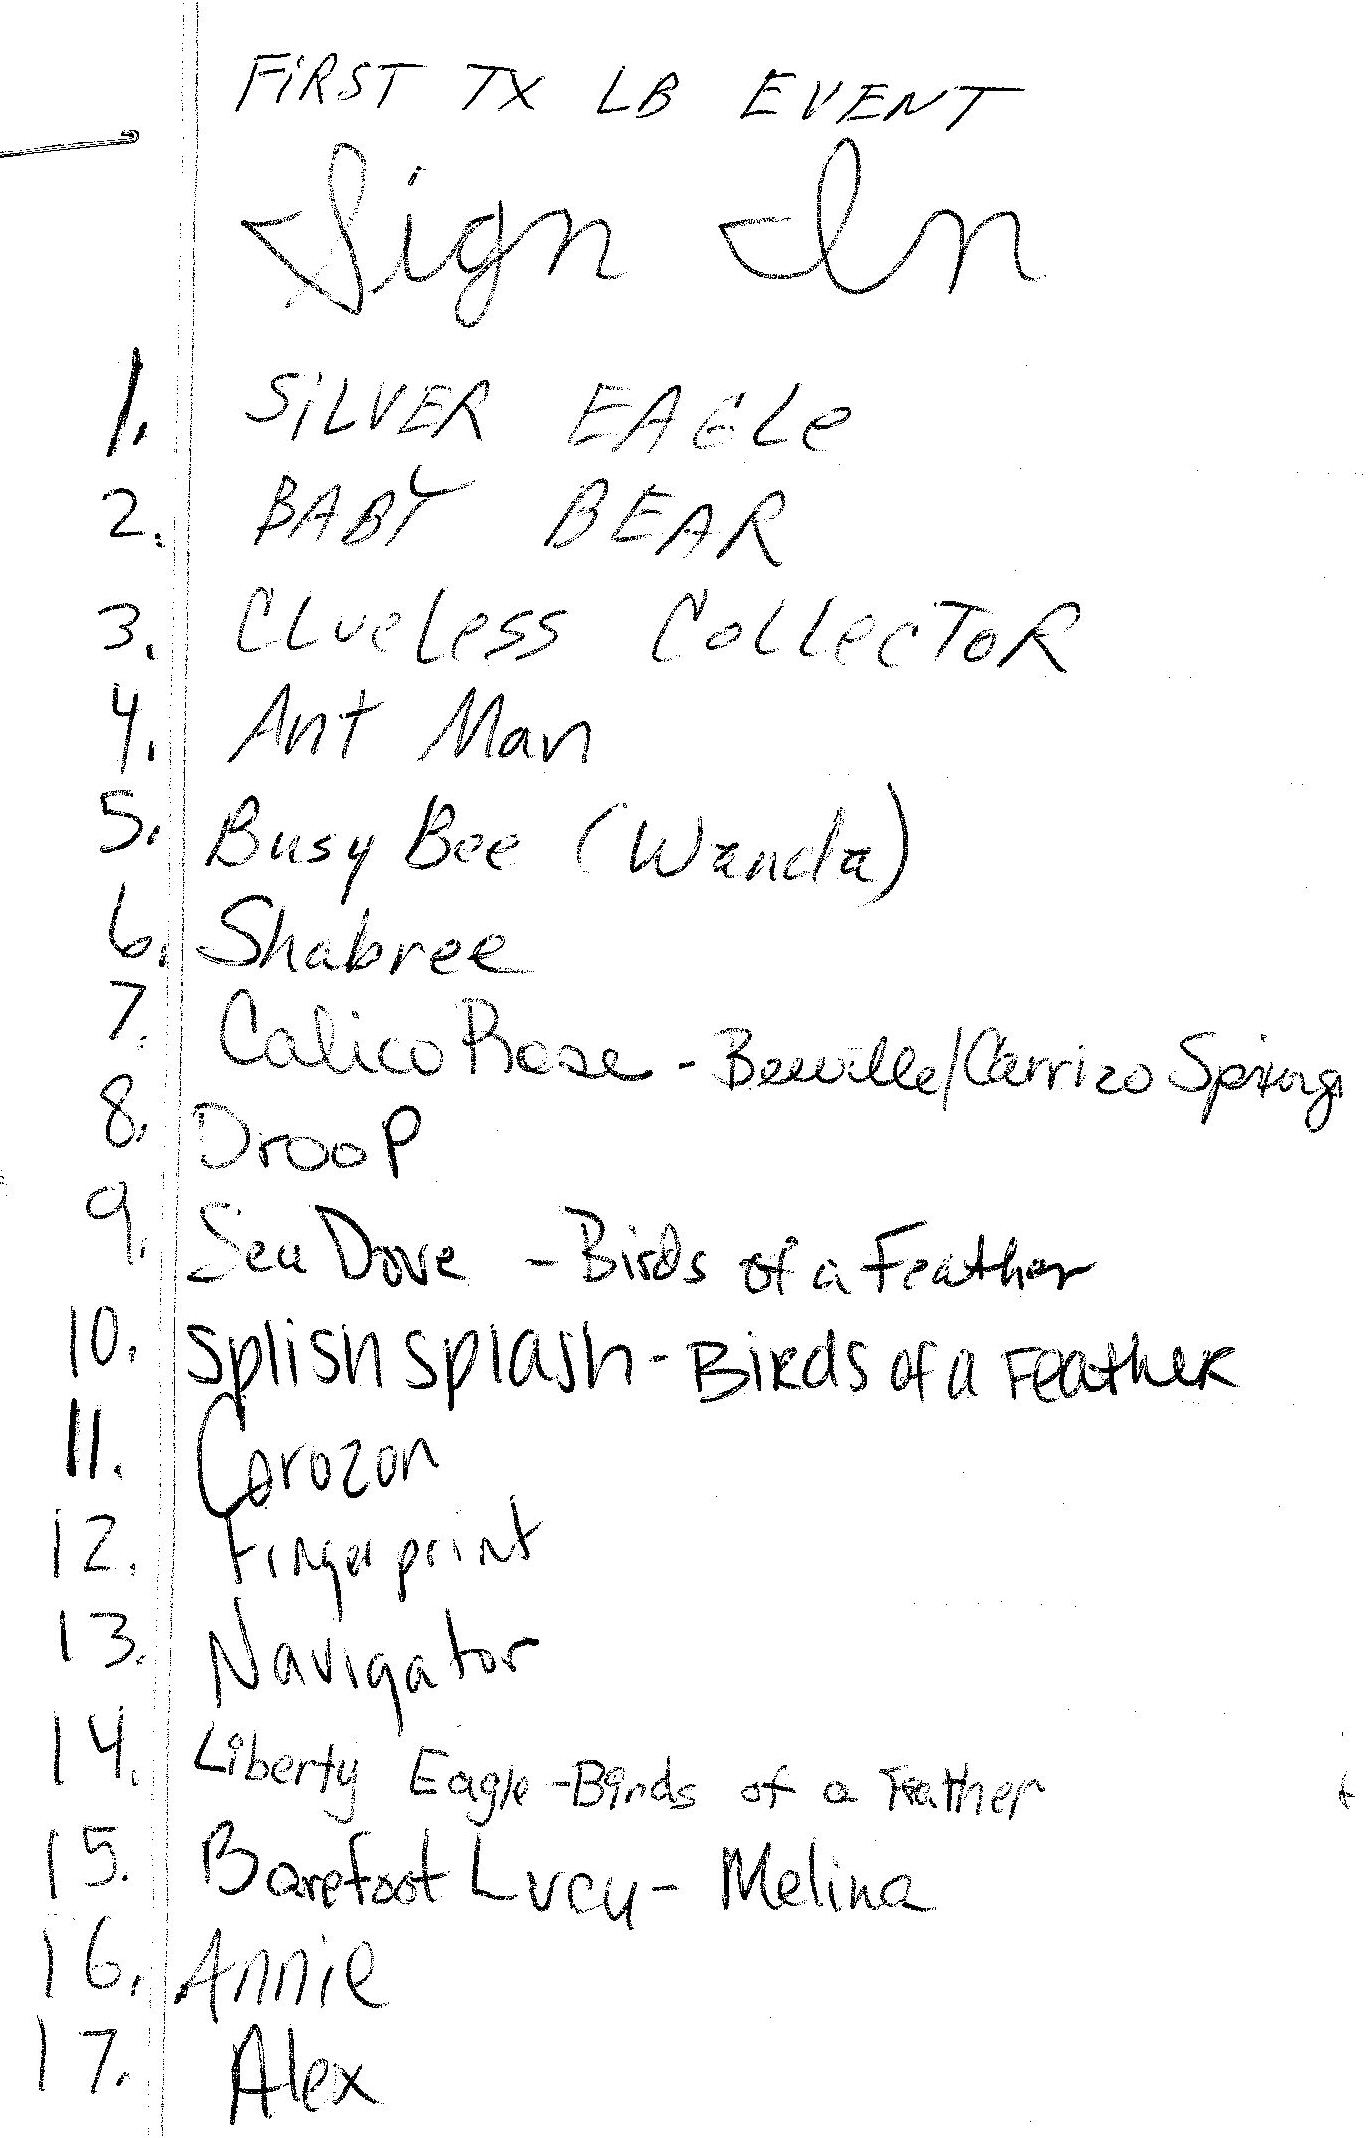 FiRST TX LB EVENT
Sign In
1. SiLVER EAGLe
2. BABY BEAR
3. CLueLess CoLLecToR
4. Ant Man
5. Busy Bee (Wanda)
6. Shabree
7. Calico Rose - Beeville/Carrizo Springs
8. DrooP
9. Sea Dove - Birds of a Feather
10. Splish Splash - Birds of a Feather
11. Corozon
12. Fingerprint
13. Navigator
14. Liberty Eagle - Birds of a Feather
15. Barefoot Lucy - Melina
16. Annie
17. Alex